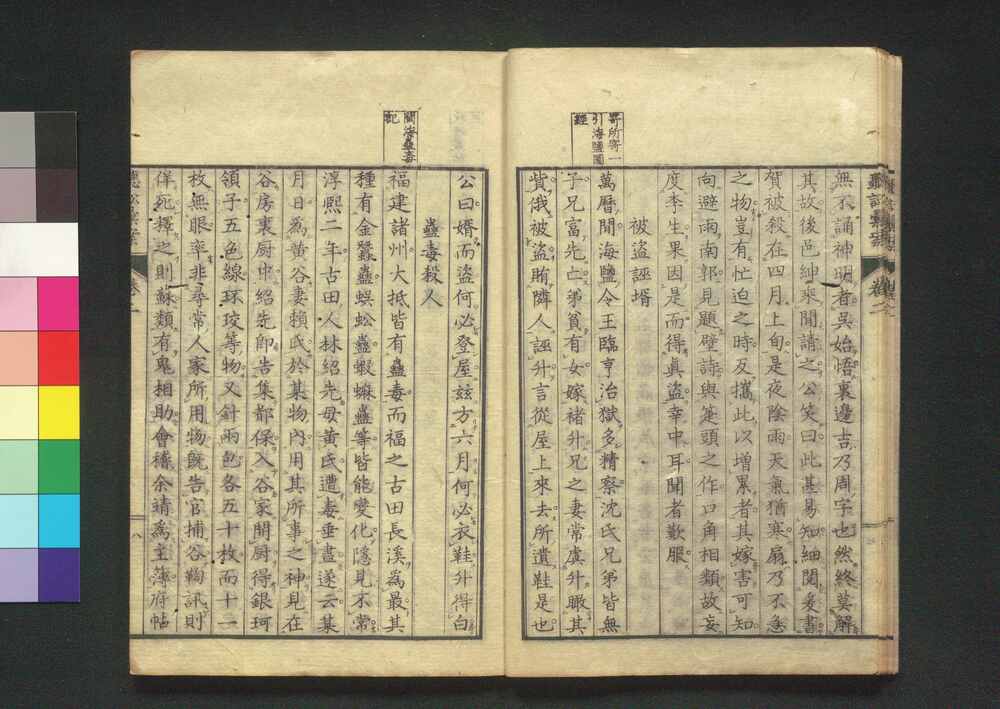 無不誦神明者吳始悟裏邊吉乃周字也然終莫解
其故後邑紳乘間請之公笑曰此甚易知細閱爰書
賀被殺在四月上旬是夜陰雨天氣猶寒扇乃不急
之物豈有忙迫之時反攜此以增累者其嫁害可知
向避雨南郭見題壁詩與箑頭之作口角相類故妄
度李生果因是而得眞盜幸中耳聞者歎服
被盜誣壻
寄所寄一
引海鹽圖
經
萬曆間海鹽令王臨亨治獄多精察沈氏兄弟皆無
子兄富先亡弟貧有女嫁褚升兄之妻常虞升瞰其
貲俄被盜賄隣人誣升言從屋上來去所遺鞋是也
公曰婿而盜何必登屋玆方六月何必衣鞋升得白
蠱毒殺人
閩海蠱毒
記
福建諸州大抵皆有蠱毒而福之古田長溪爲最其
種有金蠶蠱蜈蚣蠱蝦蟆蠱等皆能變化隱見不常
淳熙二年古田人林紹先母黃氏遭毒垂盡遂云某
月日爲黃谷妻賴氏於某物內用其所事之神見在
谷房裏厨中紹先卽告集都保入谷家開厨得銀珂
領子五色線環玟等物又針兩包各五十枚而十一
枚無眼率非尋常人家所用物旣告官捕谷鞫訊則
佯死釋之則蘇類有鬼相助會稽余靖爲主簿府帖